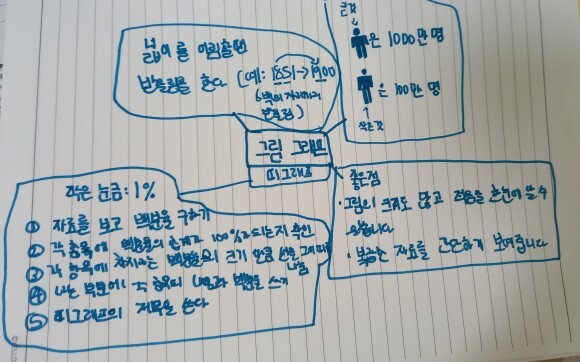 넓이를 어림할땐
반올림를 한다 [예: 1851→1900
(백의 자리까지
반올림)
큰것
은 1000만 명
은 100만 명
작은것
그림 그래프
띠그래프
좋은점
· 그림의 크기로 많고 적음을 한눈에 알 수
있습니다
· 복잡한 자료를 간단하게 보여줍니다
작은 눈금: 1%
① 자료를 보고 백분율 구하기
② 각 항목에 백분율의 합계가 100%가 되는지 확인
③ 각 항목에 차지하는 백분율의 크기 만큼 선을 그어 띠를 나눔
④ 나눈 부분에 각 항목의 백분율 쓰기
⑤ 띠그래프의 제목을 쓴다